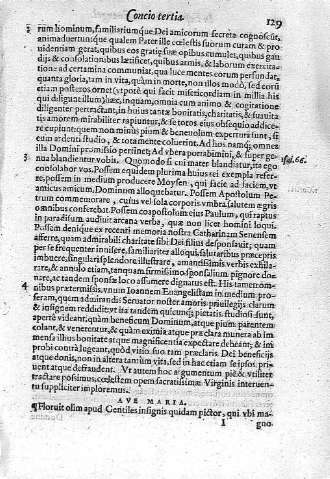 Concio tertia.
129
rum hominum, familiariumque Dei amicorum secreta cognoscũt,
animaduertuntque qualem Pater ille cœlestis suorum curam & pro-
uidentiam gerat, quibus eos gratiæ suæ opibus cumulet, quibus gau-
dijs & consolationibus lætificet, quibus armis, & laborum exercita-
tione ad certamina communiat, qua luce mentes eorum perfundat,
quanta gloria, tam in vita, quàm in morte, non illos modò, sed eorũ
etiam posteros ornet (vtpotè qui facit misericordiam in millia his
qui diligunt illum) hæc, inquam, omnia cum animo & cogitatione
diligenter pertractant, in huius tantæ bonitatis, charitatis, & suauita
tis amorem mirabiliter rapiuntur, & se totos eius obsequio addice-
re cupiunt: quem non minùs pium & beneuolum experturi sunt, si
eum ardenti studio, & tota mente coluerint. Ad hos namq; omnes
illa Domini promissio pertinet: Ad vbera portabimini, & super ge-
3
nua blandientur vobis. Quomodo si cui mater blandiatur, ita ego
Isai. 66.
consolabor vos. Possem equidem plurima huius rei exempla refer-
re, possem in medium producere Moysen, qui facie ad faciem, vt
amicus amicum, Dominum alloquebatur. Possem Apostolum Pe-
trum commemorare, cuius vel sola corporis vmbra salutem ægris
omnibus conferebat. Possem coapostolum eius Paulum, qui raptus
in paradisum audiuit arcana verba, quæ non licet homini loqui.
Possem denique ex recenti memoria nostra Catharinam Senensem
afferre, quam admirabili charitate sibi Dei filius desponsauit; quam
per se frequenter inuisere, familiariter alloqui, salutaribus præceptis
imbuere, singulari splendore illustrare, amantissimis verbis exhila-
rare, & annulo etiam, tanquam firmissimo sponsalium pignore do-
nare, ac tandem sponsæ loco assumere dignatus est. His tamen om-
4
nibus prætermissis, vnum Ioannem Euangelistam in medium pro-
feram, quem admirandis Seruator noster amoris priuilegijs clarum
& insignem reddidit: vt ita tandem quicunq; pietatis studiosi sunt,
apertè videant, quàm beneficum Dominum, atque pium parentem
colant, & venerentur, & quàm eximia atque præclara munera ab im
mensa illius bonitate atque magnificentia expectare debeant; & im
probi contrà lugeant, quòd vitio suo tam præclaris Dei beneficijs
atque donis, non in altera tantùm vita, sed in hac etiam se ipsos pri-
uent atque defraudent. Vt autem hoc argumentum piè & vtiliter
tractare possimus, cœlestem opem sacratissimæ Virginis interuen-
tu suppliciter imploremus.
AVE MARIA.
¶ Floruit olim apud Gentiles insignis quidam pictor, qui vbi ma-
I
gno